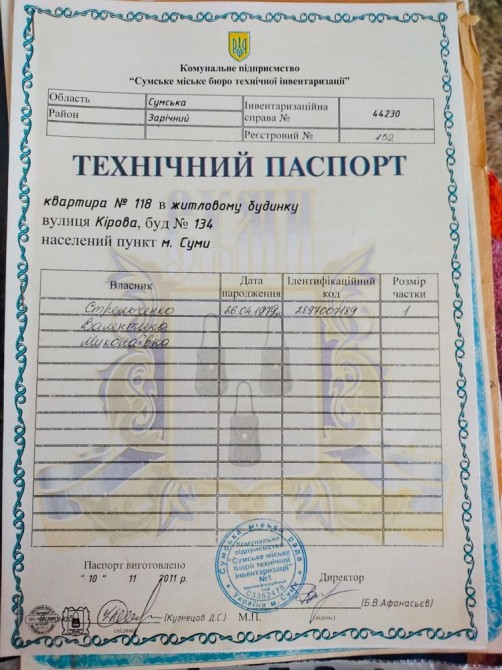 Комунальне підприємство
“Сумське міське бюро технічної інвентаризації”
Область Сумська Інвентаризаційна справа № 44230
Район Зарічний
Реєстровий № 152
ТЕХНІЧНИЙ ПАСПОРТ
квартира № 118 в житловому будинку
вулиця Кірова, буд № 134
населений пункт м. Суми
Власник Дата народження Ідентифікаційний код Розмір частки
26.04.1979р. 2897007189 1
Валентина
Миколаївна
Сумська міська рада
Комунальне
підприємство
"Сумське міське
бюро технічної
інвентаризації"
№1
03352478
Україна м. Суми
Паспорт виготовлено
"10" 11 2011 р.
Директор
(Кузнецов Д.С.) М.П. (Б.В.Афанасьєв)
(підпис) (підпис)